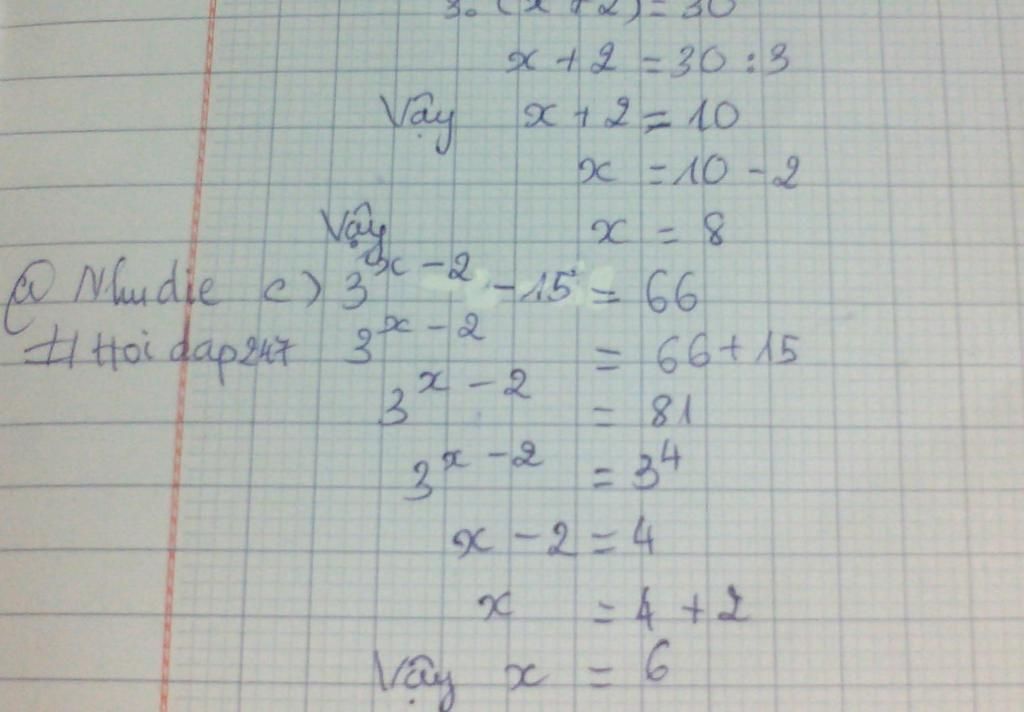 3. (x + 2) = 30
x + 2 = 30 : 3
Vậy x + 2 = 10
x = 10 - 2
Vậy x = 8
@ Nhudje c) 3^{x - 2} - 15 = 66
# Hoi dap 247 3^{x - 2} = 66 + 15
3^{x - 2} = 81
3^{x - 2} = 3^4
x - 2 = 4
x = 4 + 2
Vậy x = 6